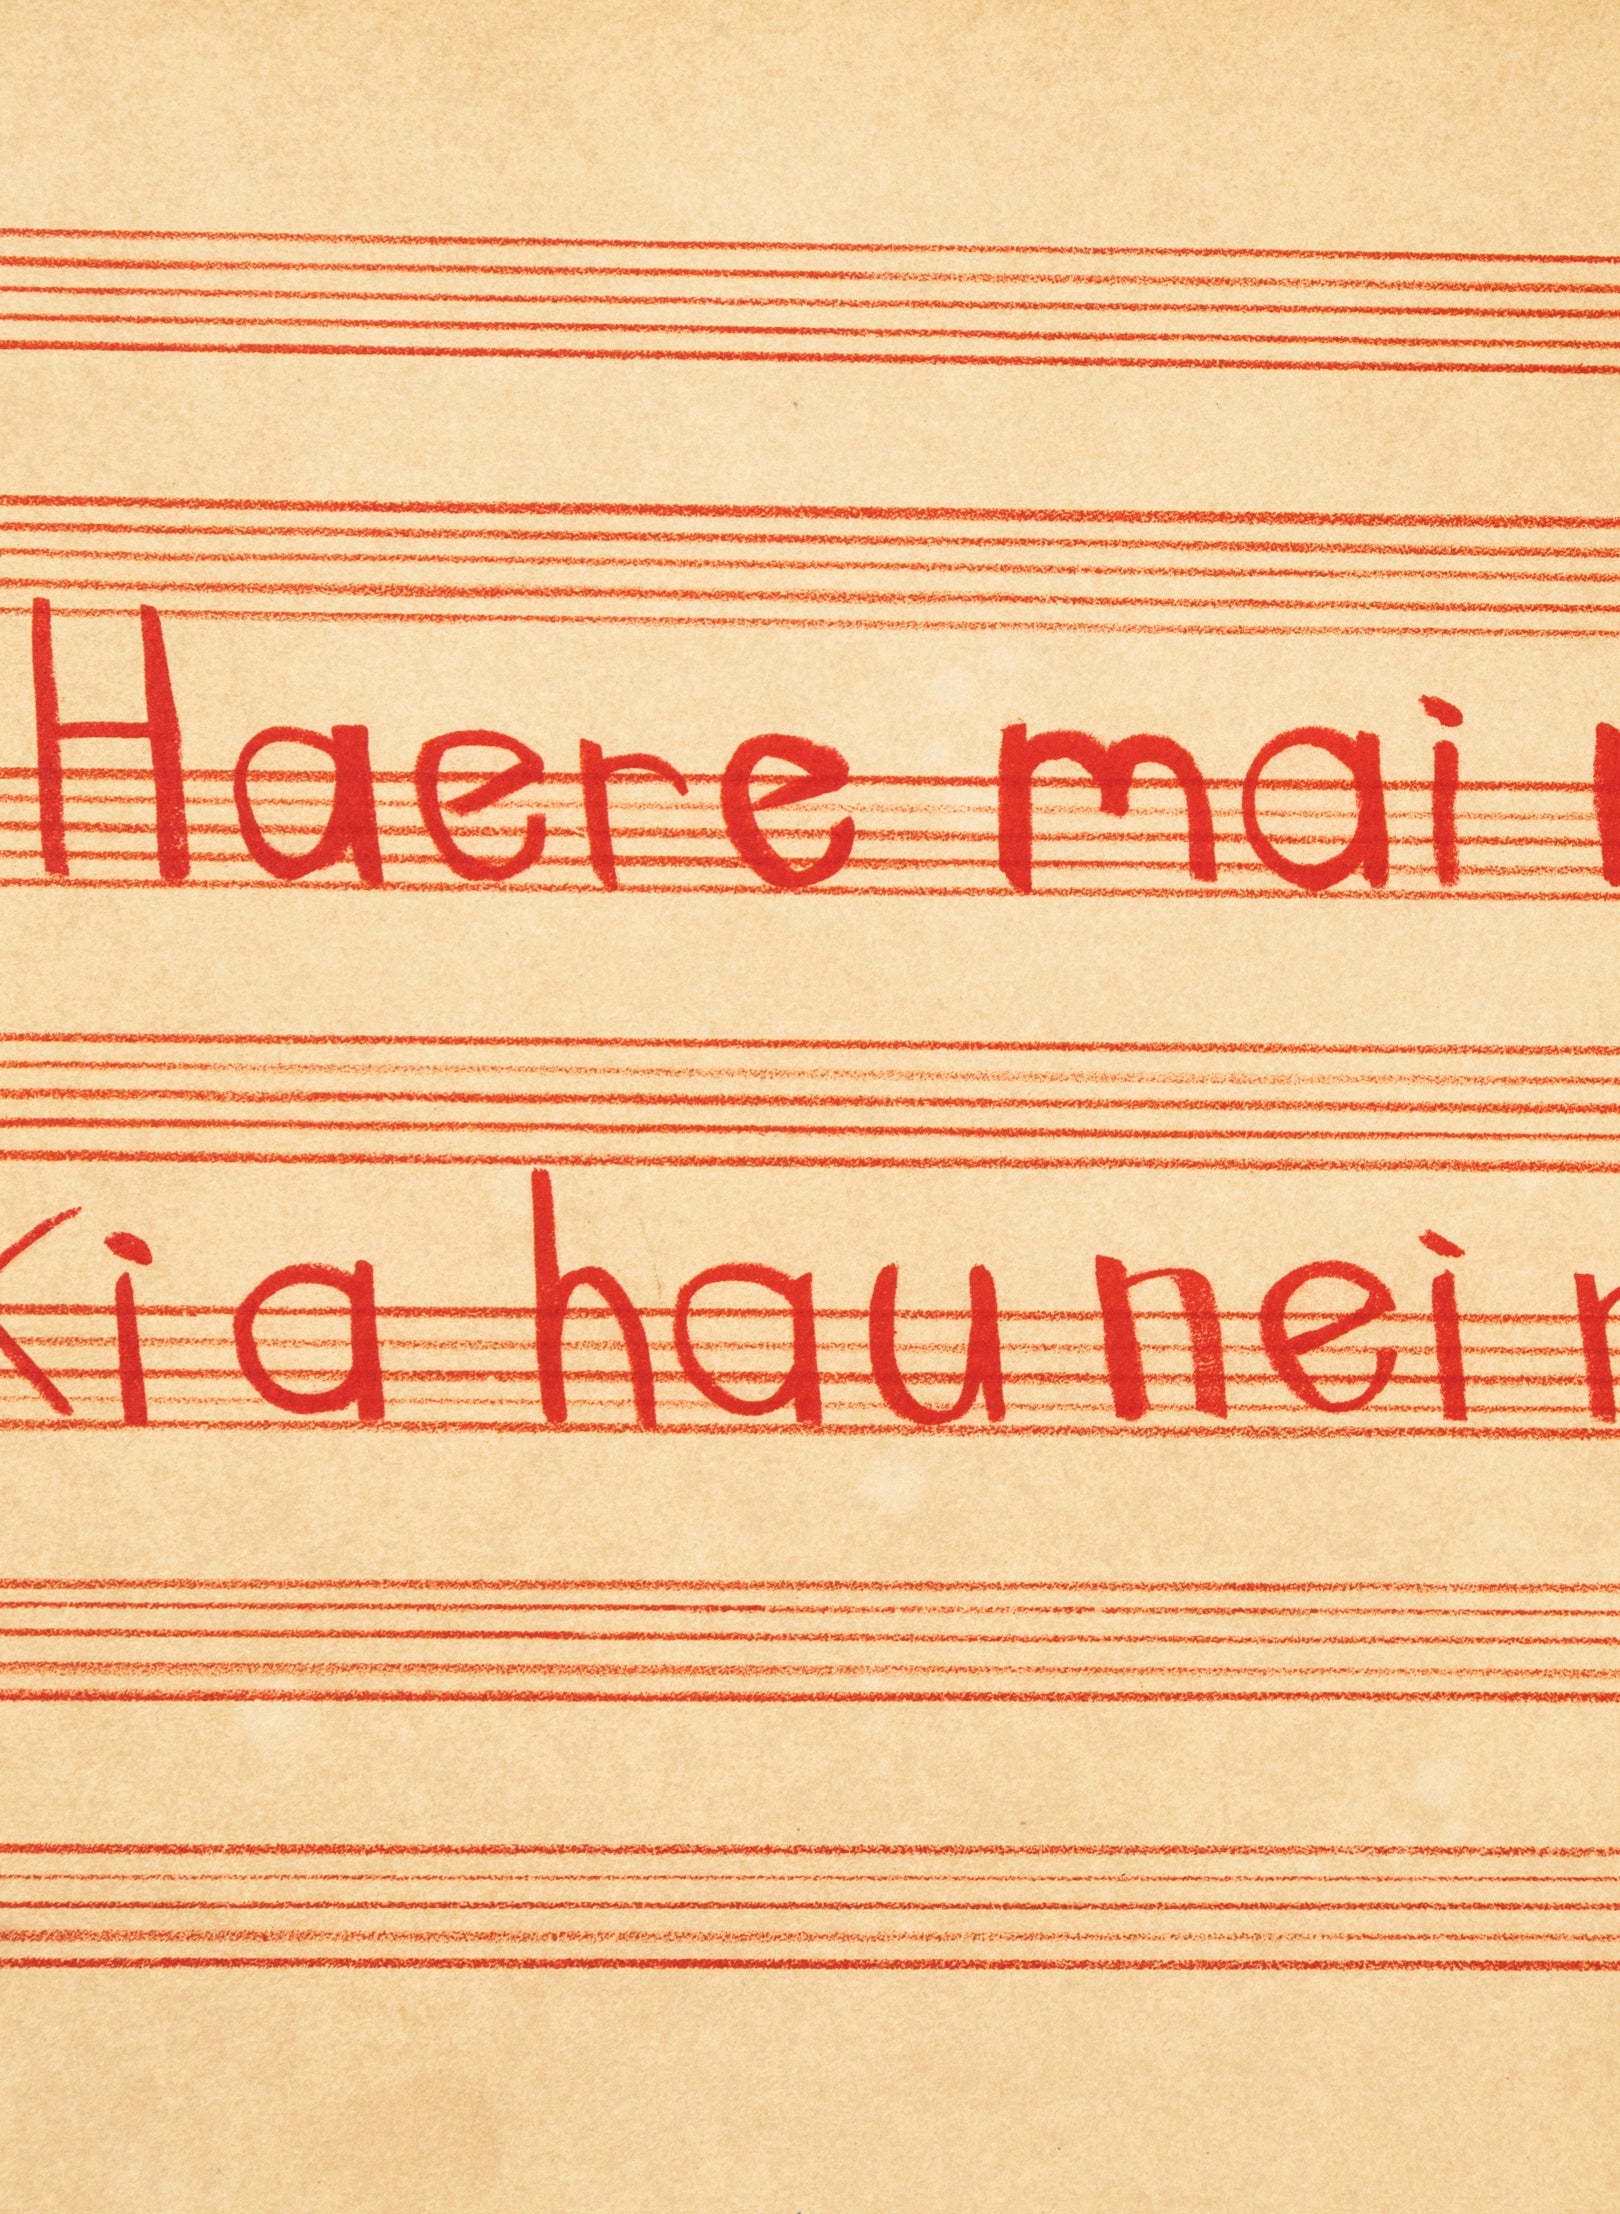 Haere mai
Kia hau nei